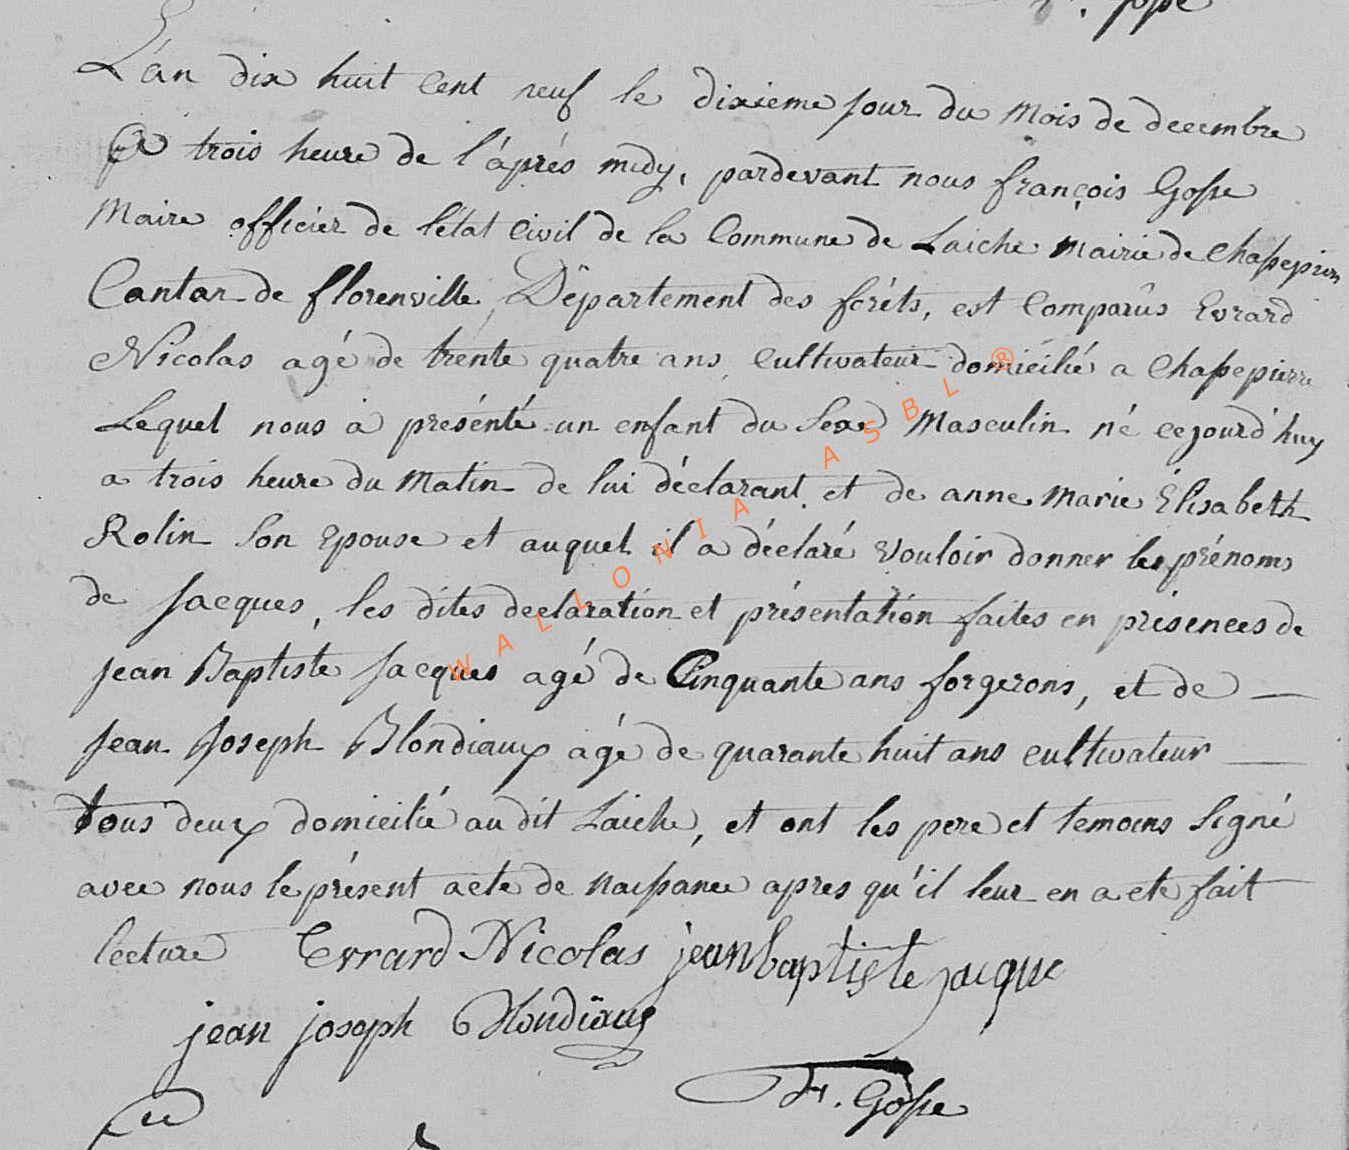 F. Gosse
L'an dix huit cent neuf le dixieme jour du mois de decembre
a trois heure de l'áprés midy, pardevant nous françois Gosse
Maire officier de l'état Civil de la Commune de Laiche Mairie de Chassepierre
Canton de florenville, Département des foréts, est Comparûs Evrard
Nicolas agé de trente quatre ans, Cultivateur domicilié a Chassepierre
Lequel nous à présénté un enfant du Sexe Masculin né cejourd'huy
a trois heure du Matin de lui déclarant et de anne Marie Elisabeth
Rolin Son Epouse et auquel il a déclaré vouloir donner les prénoms
de Jacques, les dites declaration et présentation faites en présences de
jean Baptiste Jacques agé de Cinquante ans forgerons, et de —
Jean Joseph Blondiaux agé de quarante huit ans cultivateur —
tous deux domicilié au dit Laiche, et ont les pere et temoins Signé
avec nous le présent acte de naissance apres qu'il leur en a eté fait
lecture Evrard Nicolas jean baptiste jacque
jean joseph Blondiaux
F. Gosse
WALLONIA ASBL ®